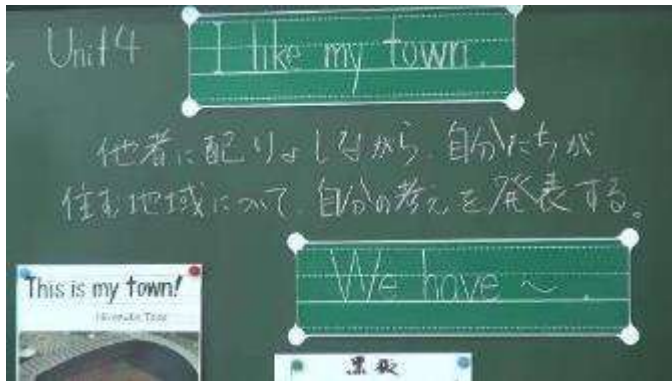 Unit 4
I like my town.
他者に配りょしながら、自分たちが
住む地域について、自分の考えを発表する。
We have ～.
This is my town!
黒板